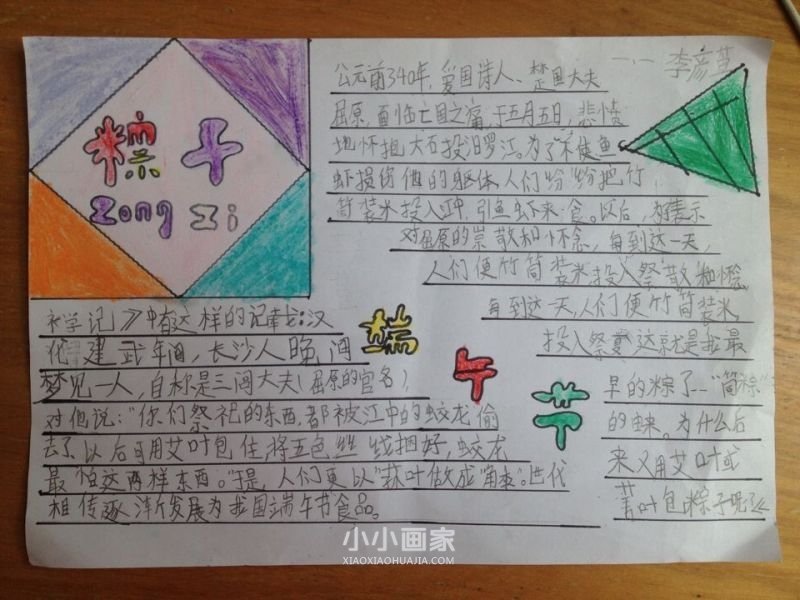 粽子
zong zi
一.一 李彦
公元前340年,爱国诗人、楚国大夫
屈原,面临亡国之痛,于五月五日,悲愤
地怀抱大石投汨罗江。为了不使鱼
虾损伤他的躯体,人们纷纷把竹
筒装米投入江中,引鱼虾来食。以后,为表示
对屈原的崇敬和怀念,每到这一天,
人们便竹筒装米投入祭敬和怀念
每到这一天,人们便竹筒装米
投入祭奠这就是我最
早的粽子--"筒粽"
的由来。为什么后
来又用艾叶或
叶包粽子呢?《
初学记》中有这样的记载:汉
代建武年间,长沙人晚间
梦见一人,自称是三闾大夫(屈原的官名)
对他说:"你们祭祀的东西,都被江中的蛟龙偷
去了以后可用艾叶包住,将五色丝线捆好,蛟龙
最怕这两样东西。"于是,人们更以"菰叶做成"角黍"。世代
相传逐渐发展为我国端午节食品。
端
午
节
小小画家
XIAOXIAOHUAJIA.COM